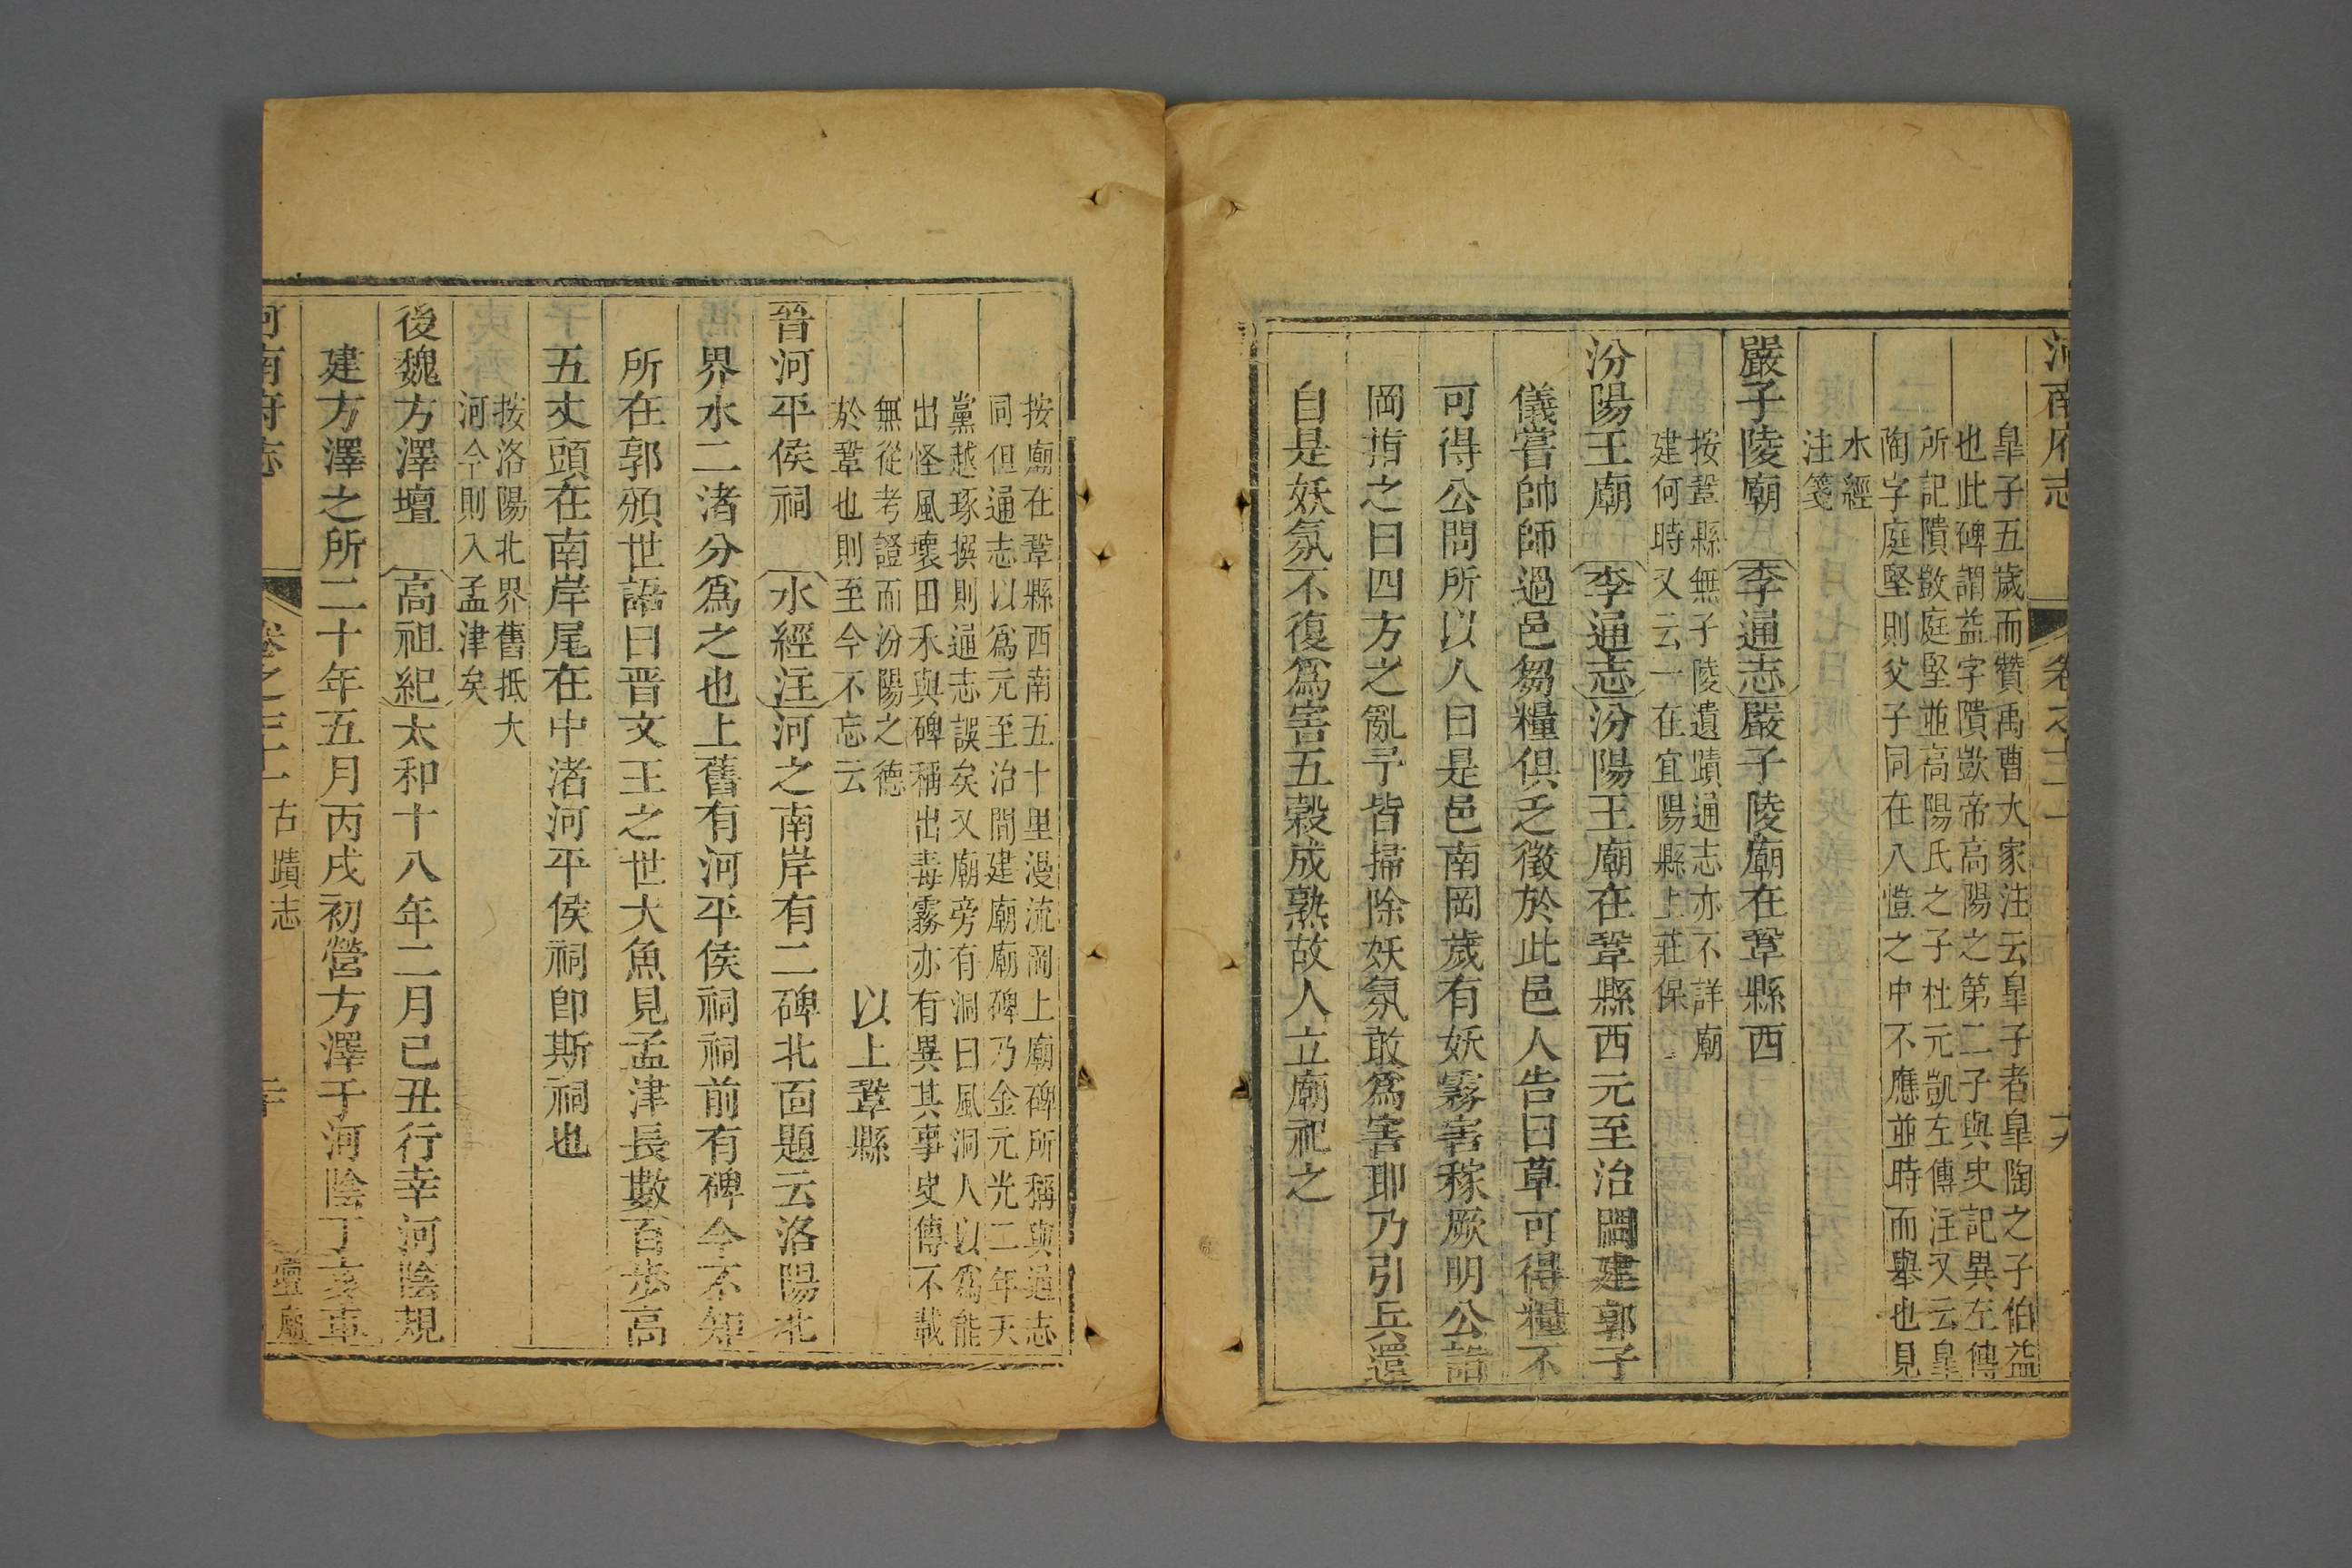 河南府志 卷之三十一
臯子五歲而贊禹曹大家注云臯子者臯陶之子伯益
也此碑謂益字隤敳帝高陽之第二子與史記異左傳
所記隤敳庭堅並高陽氏之子杜元凱左傳注又云臯
陶字庭堅則父子同在八愷之中不應並時而舉也見
水經
注箋
嚴子陵廟 李通志嚴子陵廟在鞏縣西
按鞏縣無子陵遺蹟通志亦不詳廟
建何時又云一在宜陽縣上莊保
汾陽王廟 李通志汾陽王廟在鞏縣西元至治間建郭子
儀嘗帥師過邑芻糧俱乏徵於此邑人告曰草可得糧不
可得公問所以人曰是邑南岡歲有妖霧害稼厥明公詣
岡指之曰四方之亂予皆掃除妖氛敢爲害耶乃引兵還
自是妖氛不復爲害五穀成熟故人立廟祀之
按廟在鞏縣西南五十里漫流岡上廟碑所稱與通志
同但通志以爲元至治間建廟廟碑乃金元光二年天
黨越琢撰則通志誤矣又廟旁有洞曰風洞人以爲能
出怪風壞田禾與碑稱出毒霧亦有異其事史傳不載
無從考證而汾陽之德
於鞏也則至今不忘云
以上鞏縣
晉河平侯祠 水經注河之南岸有二碑北面題云洛陽北
界水二渚分爲之也上舊有河平侯祠祠前有碑今不知
所在郭頒世語曰晉文王之世大魚見孟津長數百步高
五丈頭在南岸尾在中渚河平侯祠卽斯祠也
按洛陽北界舊抵大
河今則入孟津矣
後魏方澤壇 高祖紀太和十八年二月己丑行幸河陰規
建方澤之所二十年五月丙戌初營方澤于河陰丁亥車
河南府志 卷之三十一 古蹟志 壇廟